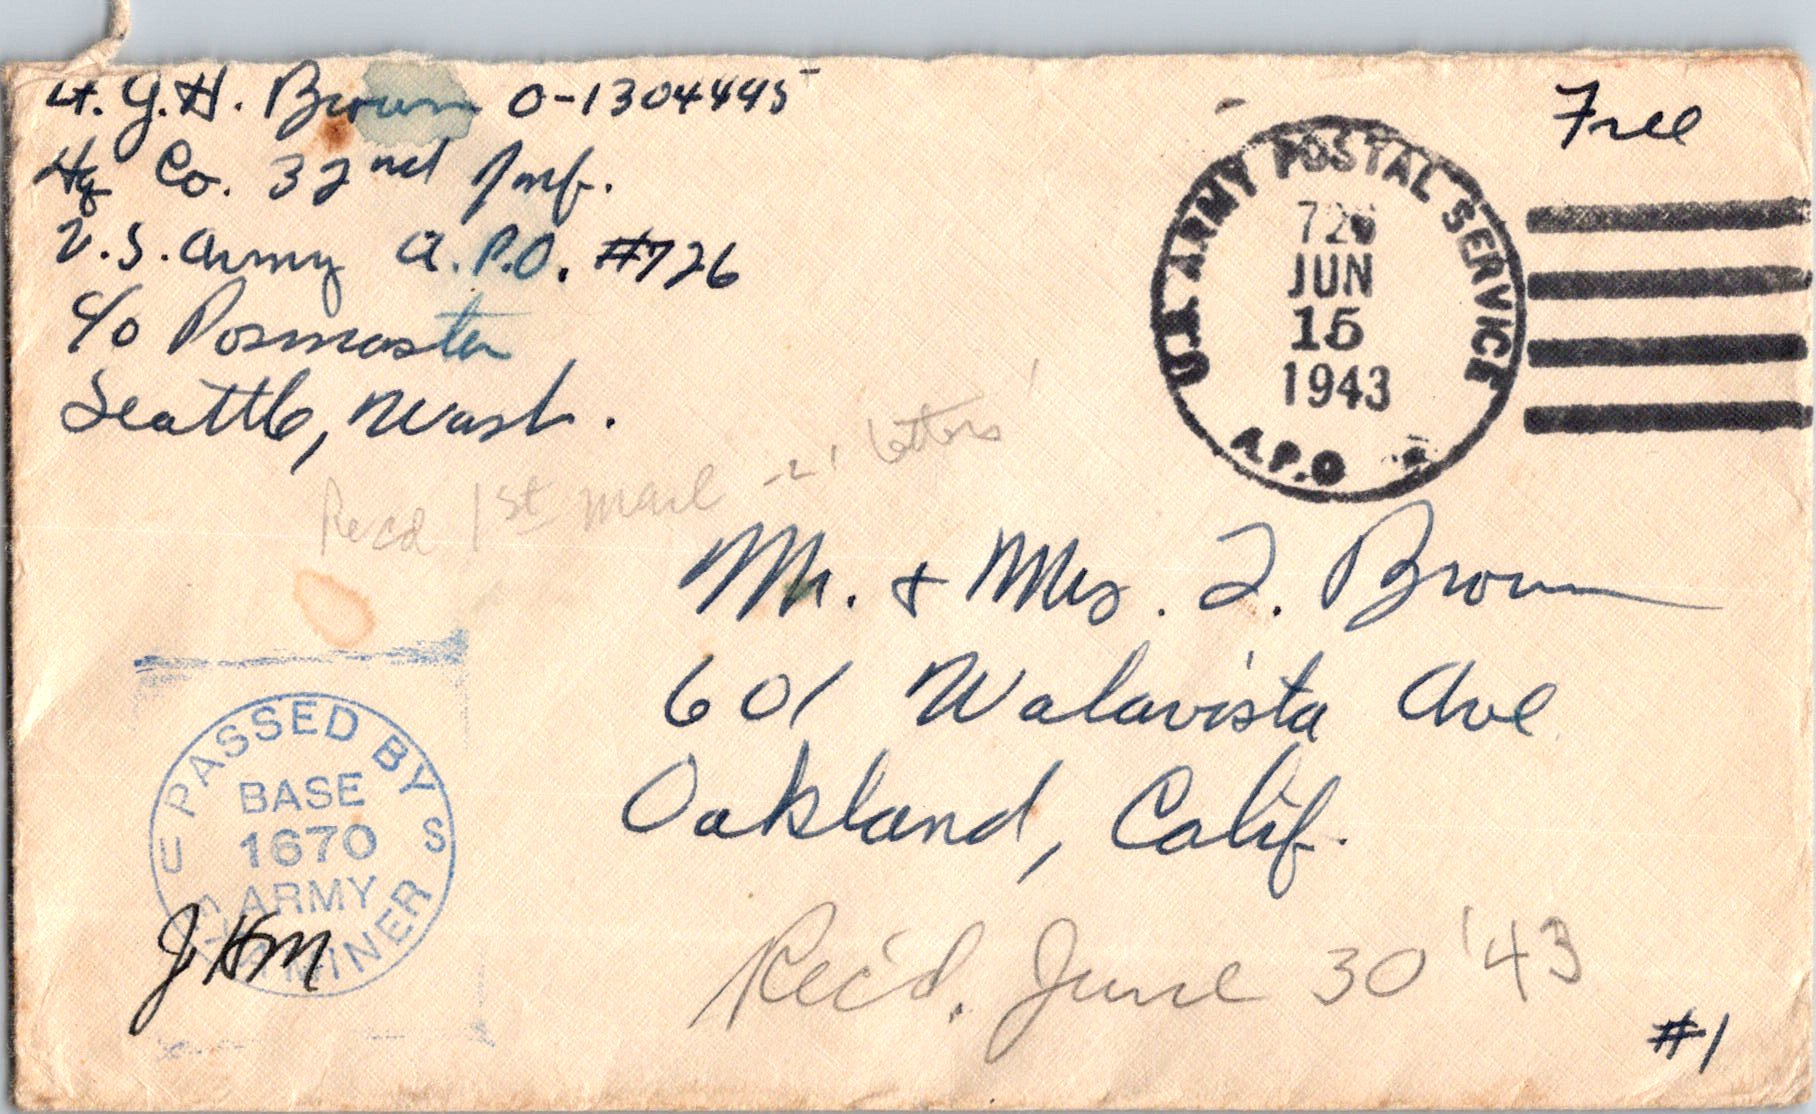 Lt. J.H. Brown O-1304445
Hq Co. 32nd Inf.
U.S. Army A.P.O. #726
c/o Posmaster
Seattle, Wash.
Free
U.S. ARMY POSTAL SERVICE
726
JUN
15
1943
A.P.O
Recd 1st mail -2' letters
Mr. & Mrs. J. Brown
601 Walavista Ave
Oakland, Calif.
PASSED BY
BASE
U 1670 S
ARMY
EXAMINER
JHM
Rec'd. June 30 '43
#1